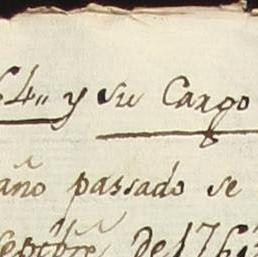 64,, y su Cargo
año passado se
septbre de 176